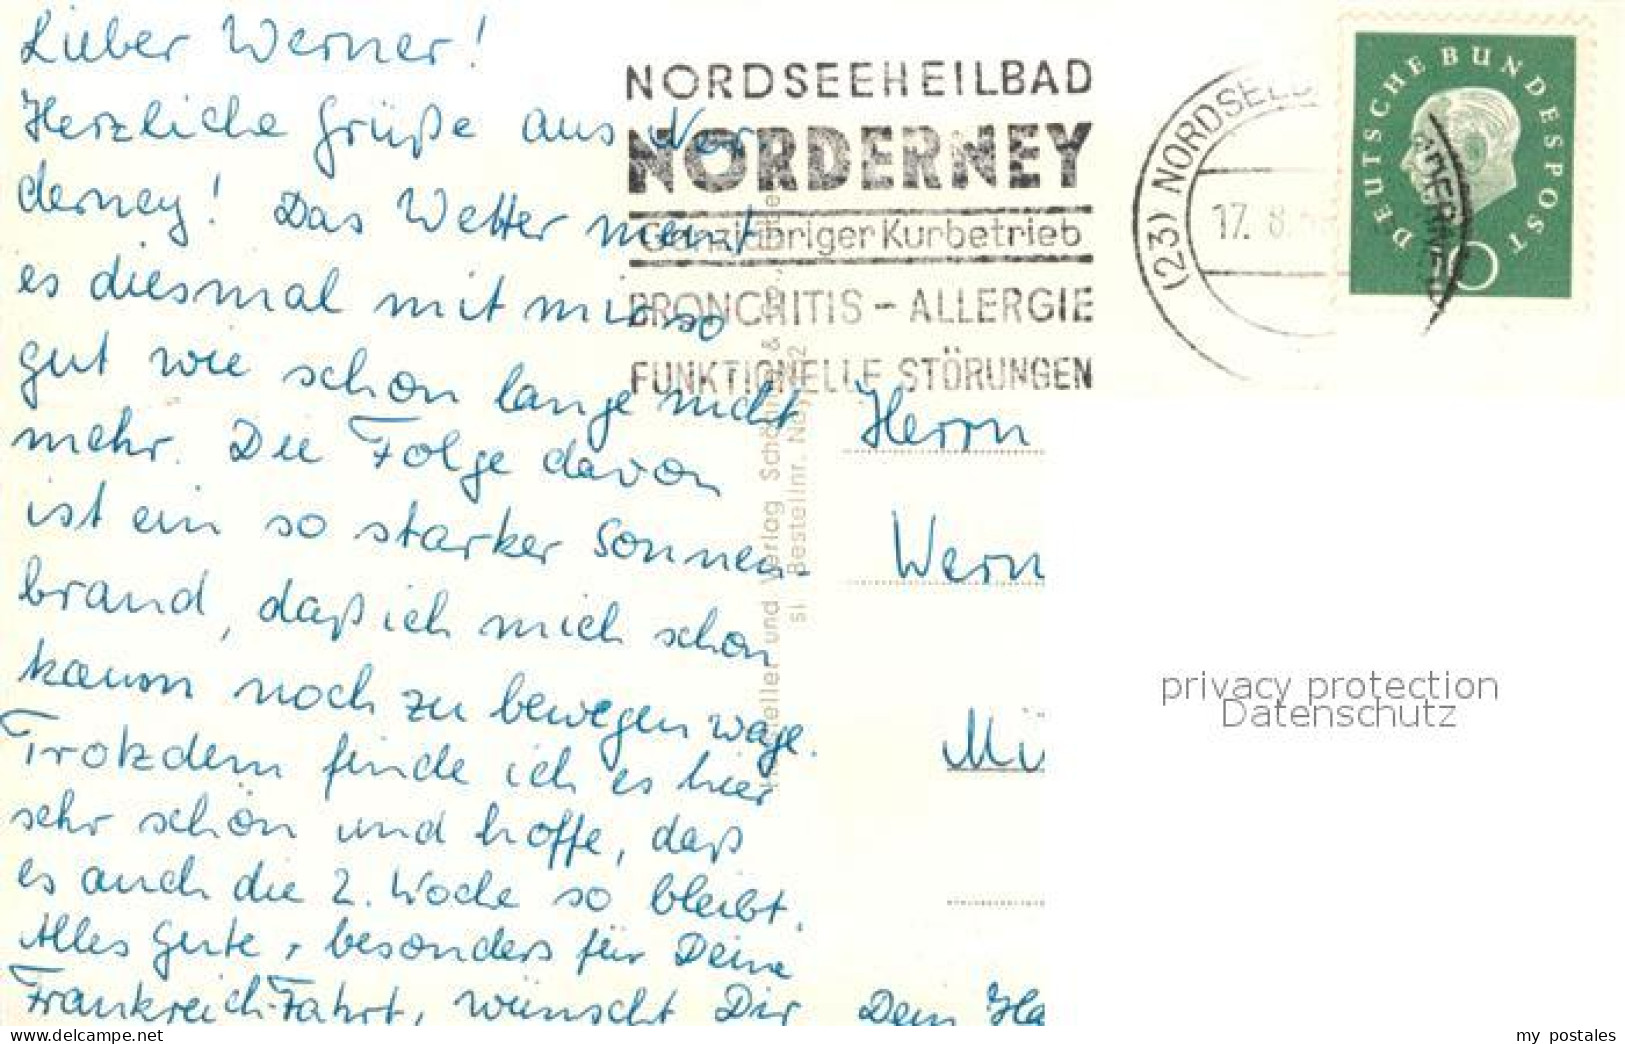 Lieber Werner!
Herzliche Grüße aus Nor
derney! Das Wetter meint
es diesmal mit mir so
gut wie schon lange nicht
mehr. Die Folge davon
ist ein so starker Sonnen-
brand, daß ich mich schon
kaum noch zu bewegen wage.
Trotzdem finde ich es hier
sehr schön und hoffe, daß
es auch die 2. Woche so bleibt.
Alles Gute, besonders für Deine
Frankreich-Fahrt, wünscht Dir Dein Ha
NORDSEEHEILBAD
NORDERNEY
Ganzjähriger Kurbetrieb
BRONCHITIS – ALLERGIE
FUNKTIONELLE STÖRUNGEN
(23) NORDSEEB
17. 8.
DEUTSCHE BUNDESPOST
Herrn
Wern
Mü
und Verlag
Bestellnr.
privacy protection
Datenschutz
my postales